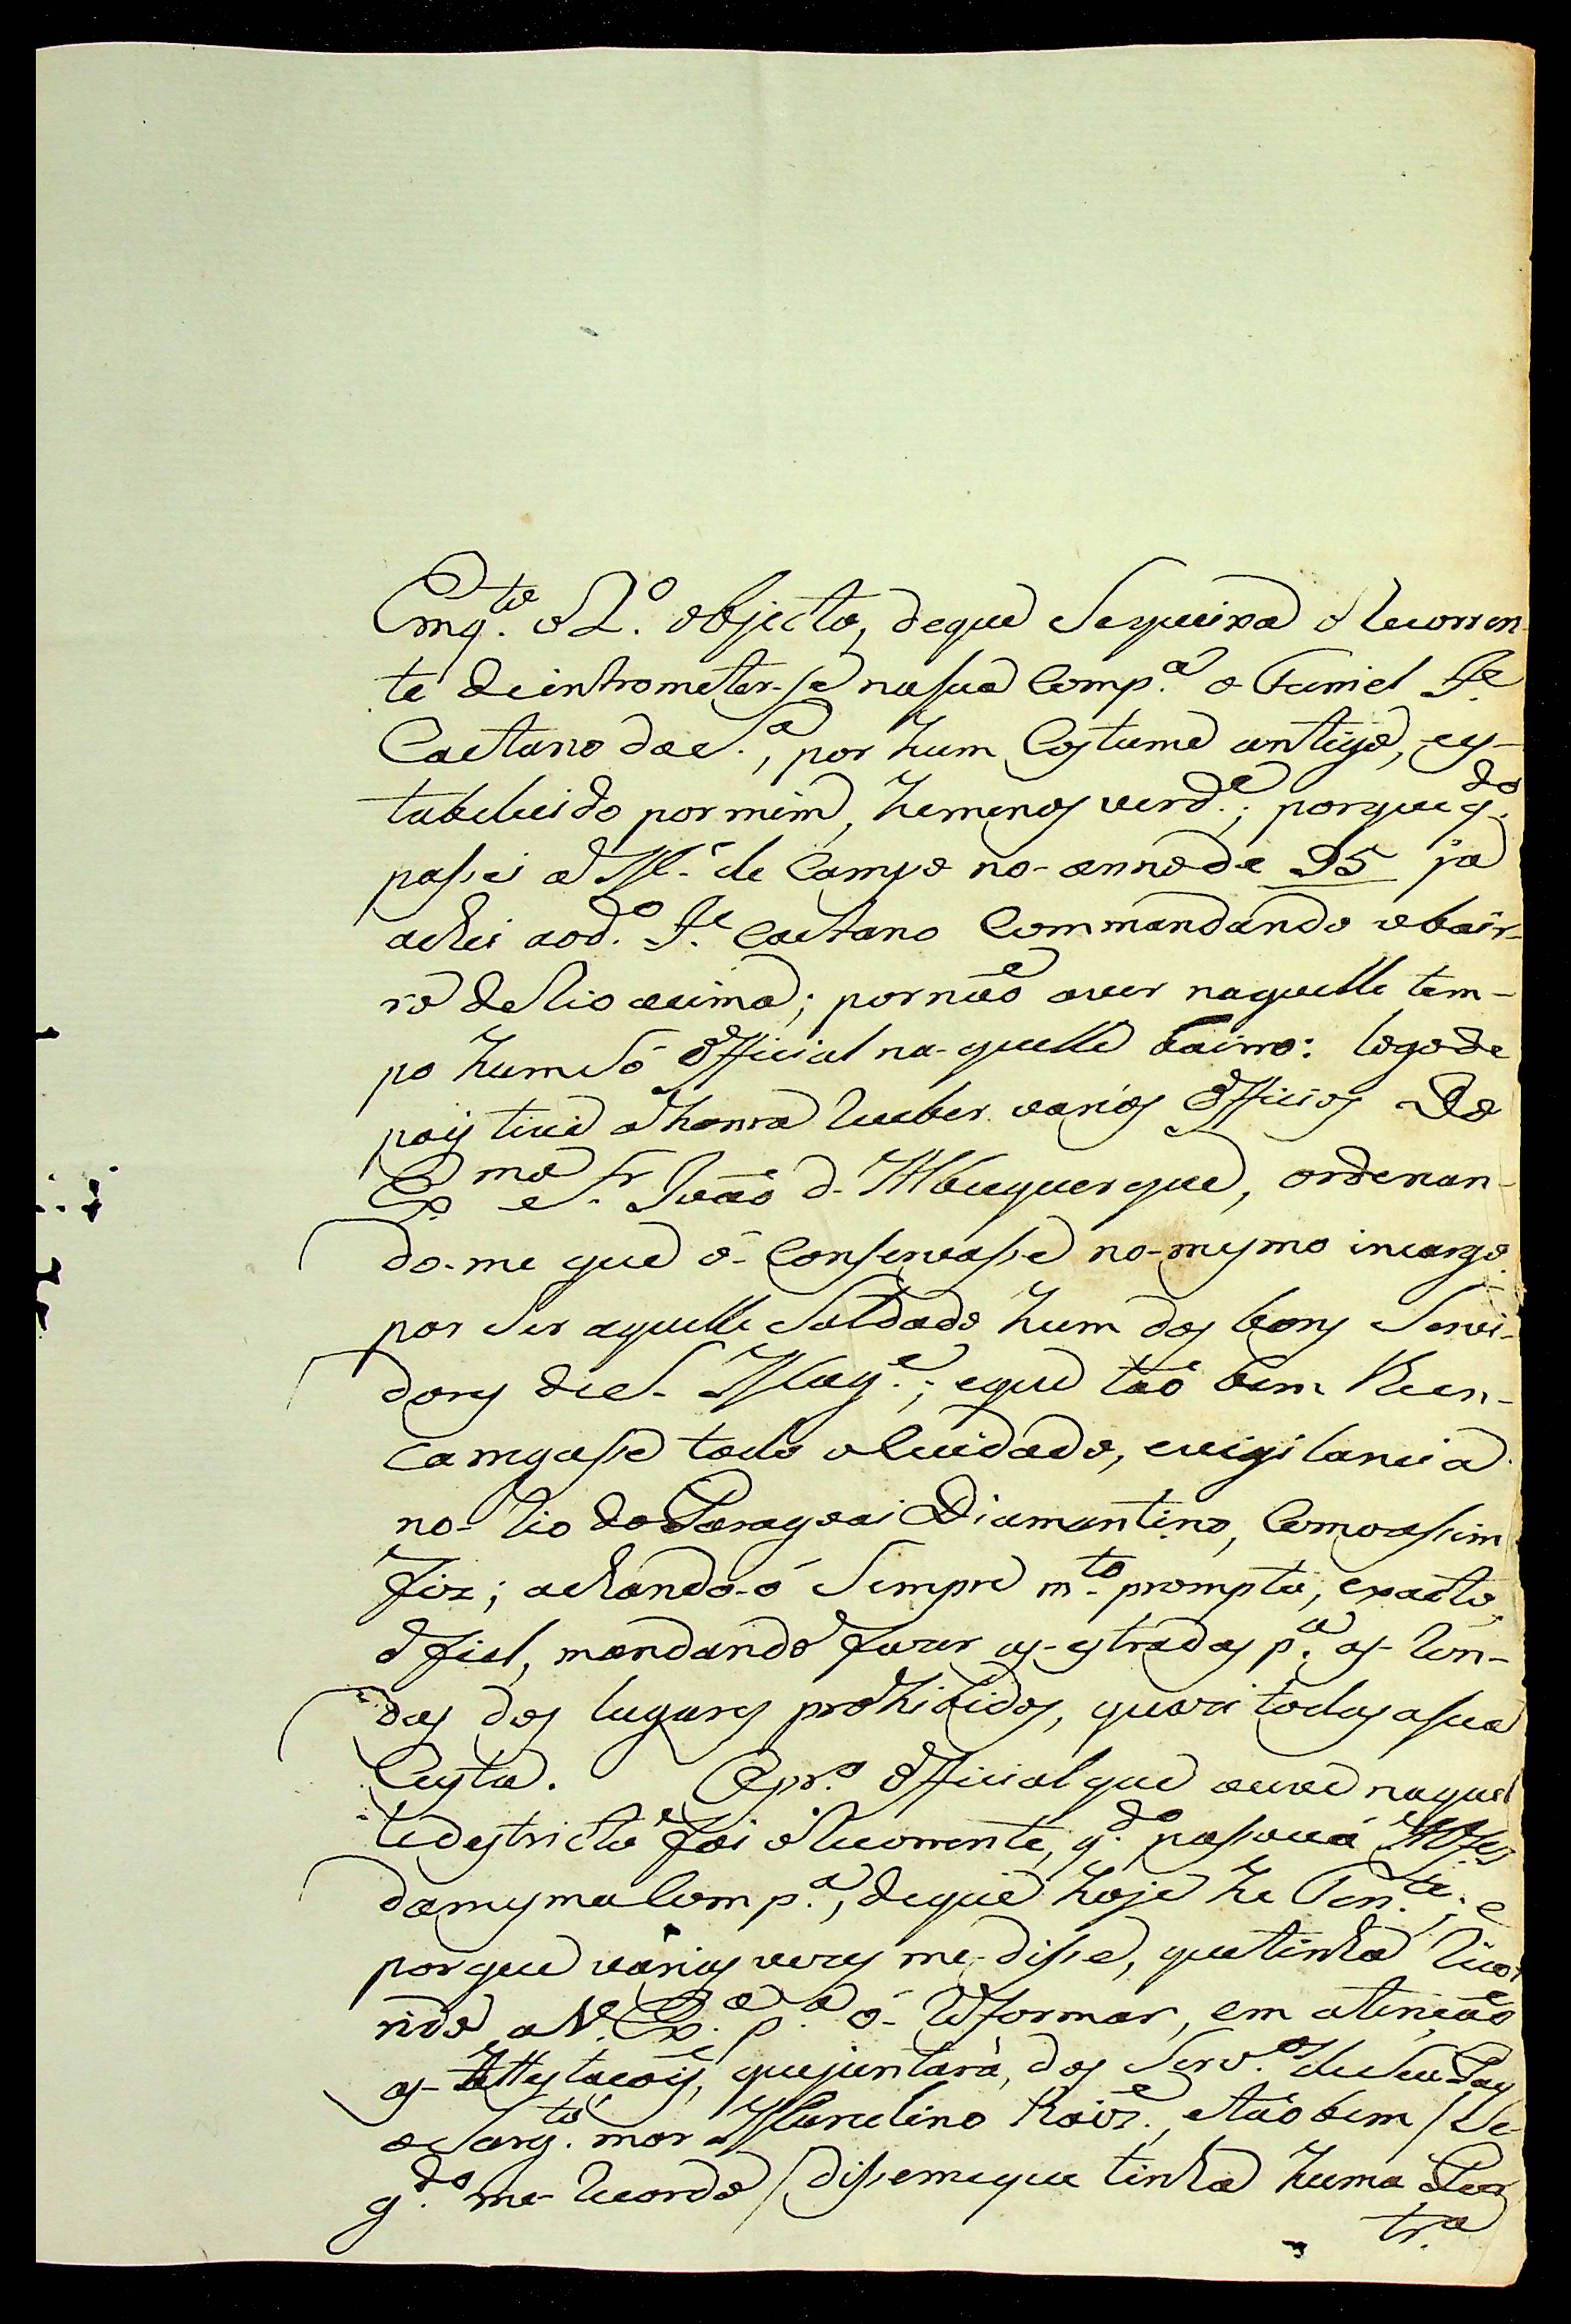 Emq.to o 2.o objecto, deque Sequeixa o Recorren-
te deintrometer-se nasua Comp.a o Furriel J.e
Caetano daS.a, por hum Costume antigo, es-
tabelecido por mim, hemenos verd.e; porque q.do
passei a M.e de Campo no-anno de 95 ja
achei aod.o J.e Caetano Commandando obair-
ro deRio acima; pornaõ aver naquelle tem-
po hum Só Official na-quelle bairro: logo de
pois tive ahonra receber varios Officios Do
Ex.mo S.r Joaõ d'Albuquerque, ordenan-
do-me que o-Conservasse no-mesmo incargo
por Ser aquelle Soldado hum dos bons Servi-
dores deS. Mag.e; eque taõ bem Reen-
carregase todo oCuidado, evigilancia
no-Rio do Paragoai Diamantino, Comoassim
fiz; achando-o Sempre m.to prompto, exacto,
e fiel, mandando fazer as-estradas p.a as-Ron-
das dos lugares prohibidos, quazi todas asua
Custa. Opr.o Official que ouve naquel
ledestricto foi oRecorrente, q.do passou á Alferes
damesmaComp.a, deque hoje he Ten.te; e
porque varias vezes me-disse, quetinha recor
rido aV. Ex.a p.a o-Reformar, em atençaõ
as-Attestaçoẽs, quejuntara, dos Serv.os deSeu Pay
oSarg.to mor Marcelino Roiz., etaõbem / Se-
g.do me-Recordo / dissemeque tinha huma Por
tr.a